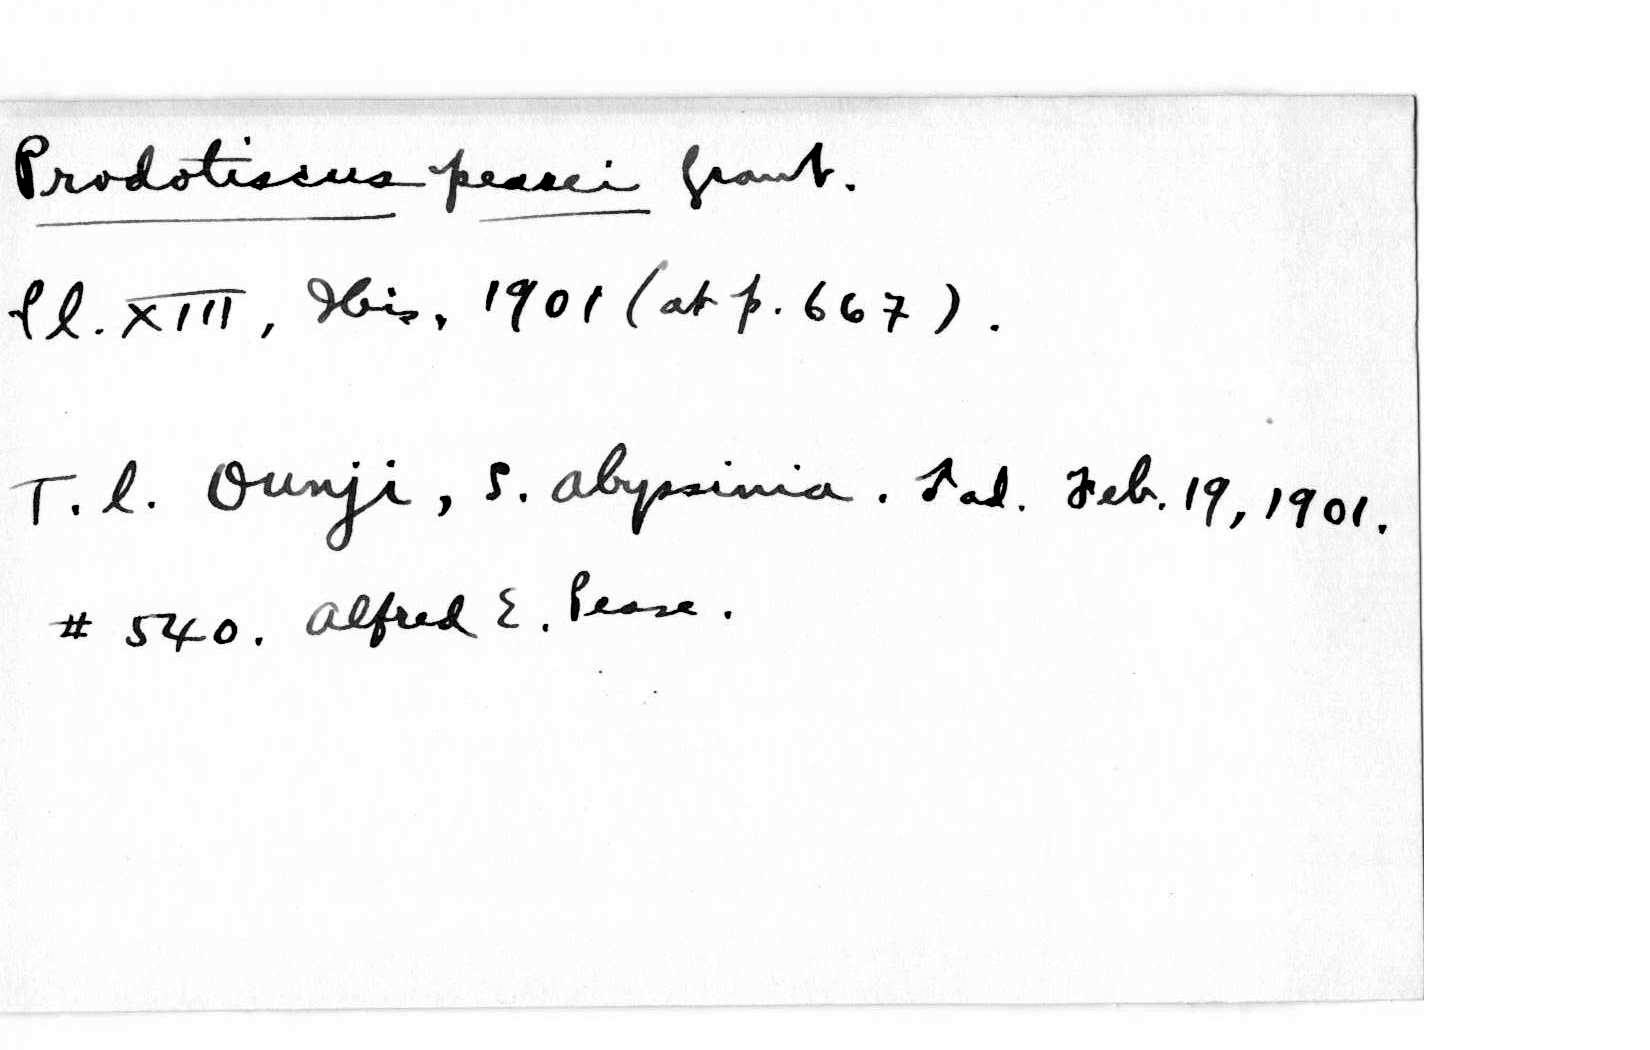 Prodotiscus peasei Grant.
Pl. XIII, Ibis, 1901 (at p. 667).
T. l. Ounji, S. Abyssinia. ♂ ad. Feb. 19, 1901.
# 540. Alfred E. Pease.